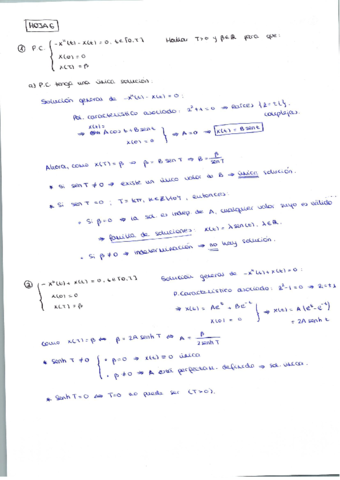 HOJA 6
① P.C. { -x''(t) - x(t) = 0, t∈[0,T] Hallar T>0 y β∈ℝ para que:
x(0) = 0
x(T) = β
a) P.C. tenga una única solución:
Solución general de -x''(t) - x(t) = 0:
Po. característico asociado: z²+1=0 → Raíces {z=±i} complejas.
x(t) = A cos t + B sen t
x(0) = 0 } ⇒ A=0 ⇒ x(t) = B sen t
Ahora, como x(T)=β ⇒ β = B sen T ⇒ B = β/sen T
* Si sen T ≠ 0 → existe un único valor de B ⇒ única solución.
* Si sen T = 0; T = kπ, k∈ℤ\{0}, entonces:
- Si β=0 ⇒ la sol. es indep de A, cualquier valor suyo es válido
⇒ familia de soluciones: x(t) = λ sen(t), λ∈ℝ.
- Si β≠0 ⇒ indeterminación ⇒ no hay solución.
② { -x''(t) + x(t) = 0, t∈[0,T] Solución general de -x''(t)+x(t)=0:
x(0) = 0
x(T) = β
P. Característico asociado: z²-1=0 → z=±1
⇒ x(t) = Ae^t + Be^-t
x(0) = 0 } ⇒ x(t) = A(e^t - e^-t)
= 2A senh t
como x(T)=β ⇔ β = 2A senh T ⇔ A = β/2 senh T
* senh T ≠ 0 { - β=0 ⇒ x(t)≡0 única
- β≠0 ⇒ A está perfectam. definido ⇒ sol. única.
* Senh T=0 ⇔ T=0 no puede ser (T>0).